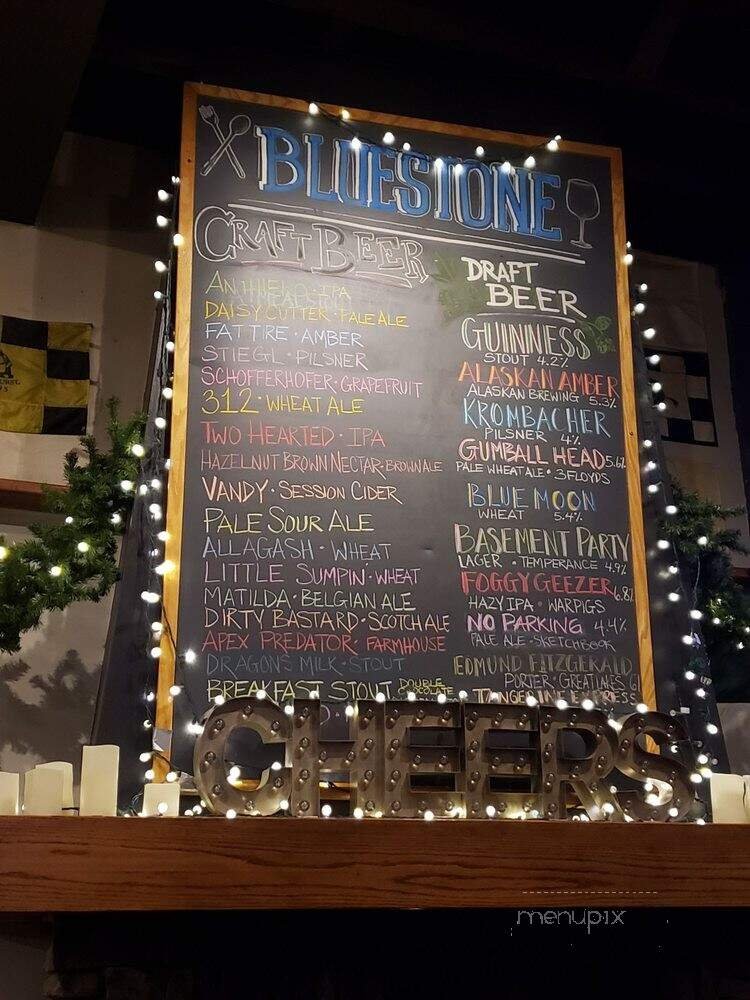 BLUESTONE
CRAFT BEER
ANTI HERO · IPA
DAISY CUTTER · PALE ALE
FAT TIRE · AMBER
STIEGL · PILSNER
SCHOFFERHOFER · GRAPEFRUIT
312 · WHEAT ALE
TWO HEARTED · IPA
HAZELNUT BROWN NECTAR · BROWN ALE
VANDY · SESSION CIDER
PALE SOUR ALE
ALLAGASH · WHEAT
LITTLE SUMPIN · WHEAT
MATILDA · BELGIAN ALE
DIRTY BASTARD · SCOTCH ALE
APEX PREDATOR · FARMHOUSE
DRAGONS MILK · STOUT
BREAKFAST STOUT DOUBLE CHOCOLATE
DRAFT
BEER
GUINNESS
STOUT 4.2%
ALASKAN AMBER
ALASKAN BREWING 5.3%
KROMBACHER
PILSNER 4%
GUMBALL HEAD 5.6%
PALE WHEAT ALE · 3 FLOYDS
BLUE MOON
WHEAT 5.4%
BASEMENT PARTY
LAGER · TEMPERANCE 4.9%
FOGGY GEEZER 6.8%
HAZY IPA · WARPIGS
NO PARKING 4.4%
PALE ALE · SKETCHBOOK
EDMUND FITZGERALD
PORTER · GREAT LAKES
TANGERINE EXPRESS
CHEERS
menupix